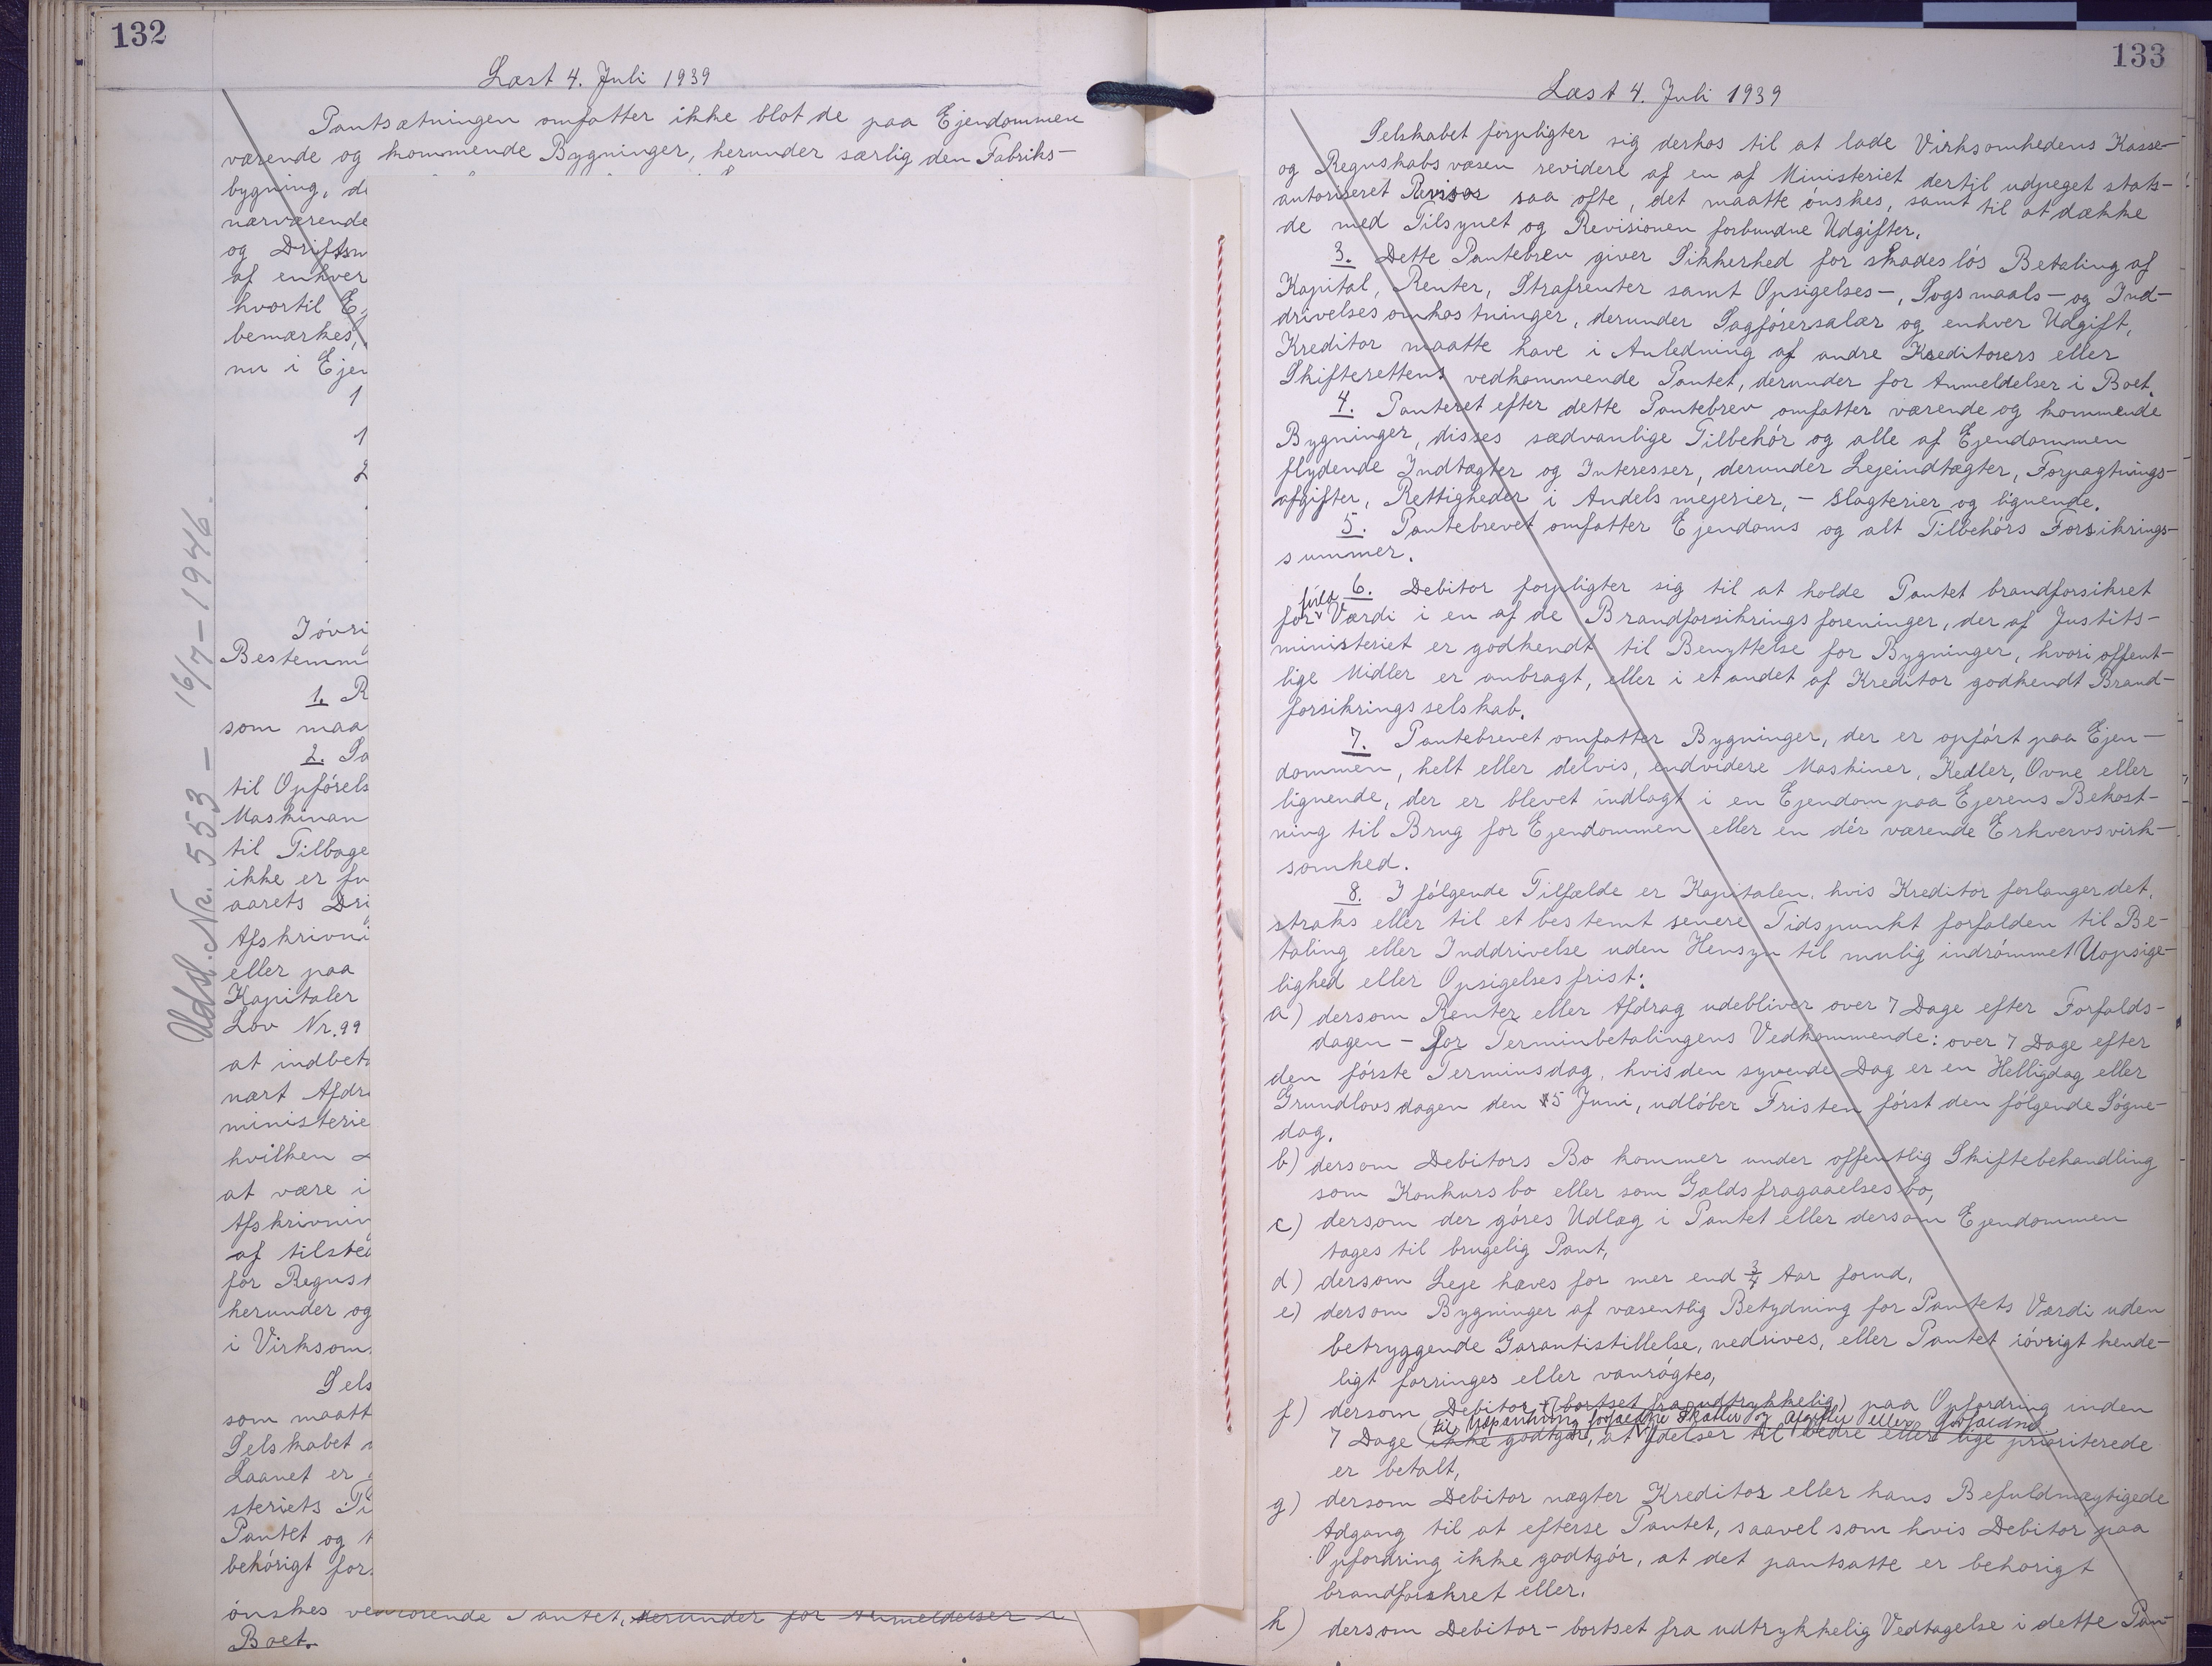 132
Læst 4. Juli 1939
Pantsætningen omfatter ikke blot de paa Ejendommen
værende og kommende Bygninger, herunder særlig den Fabriks-
bygning, de
nærværende
og Driftsm
af enhver
hvortil E
bemærkes,
nu i Ejen
1
1
2
Iøvri
Bestemm
1. R
som maa
2. Sa
til Opførels
Maskinan
til Tilbage
ikke er fu
aarets Dri
Afskrivni
eller paa
Kapitaler
Lov Nr. 99
at indbeta
nært Afdra
ministerie
hvilken
at være i
Afskrivnin
af tilsted
for Regns
herunder og
i Virksom
Sels
som maatt
Selskabet
Laanet er
steriets Ti
Pantet og t
behørigt for
ønskes vedrørende Pantet, derunder for Anmeldelser i
Boet.
Udsl. Nr. 553 – 16/7 – 1946.
133
Læst 4. Juli 1939
Selskabet forpligter sig derhos til at lade Virksomhedens Kasse-
og Regnskabsvæsen revidere af en af Ministeriet dertil udpeget stats-
autoriseret Revisor saa ofte, det maatte ønskes, samt til at dække
de med Tilsynet og Revisionen forbundne Udgifter.
3. Dette Pantebrev giver Sikkerhed for skadesløs Betaling af
Kapital, Renter, Strafrenter samt Opsigelses-, Søgsmaals- og Ind-
drivelsesomkostninger, derunder Sagførersalær og enhver Udgift,
Kreditor maatte have i Anledning af andre Kreditorers eller
Skifterettens vedkommende Pantet, derunder for Anmeldelser i Boet.
4. Panteret efter dette Pantebrev omfatter værende og kommende
Bygninger, disses sædvanlige Tilbehør og alle af Ejendommen
flydende Indtægter og Interesser, derunder Lejeindtægter, Forpagtnings-
afgifter, Rettigheder i Andelsmejerier, - Slagterier og lignende.
5. Pantebrevet omfatter Ejendoms og alt Tilbehørs Forsikrings-
summer.
6. Debitor forpligter sig til at holde Pantet brandforsikret
fuld
for Værdi i en af de Brandforsikringsforeninger, der af Justits-
ministeriet er godkendt til Benyttelse for Bygninger, hvori offent-
lige Midler er anbragt, eller i et andet af Kreditor godkendt Brand-
forsikringsselskab.
7. Pantebrevet omfatter Bygninger, der er opført paa Ejen-
dommen, helt eller delvis, endvidere Maskiner, Kedler, Ovne eller
lignende, der er blevet indlagt i en Ejendom paa Ejerens Bekost-
ning til Brug for Ejendommen eller en dér værende Erhvervsvirk-
somhed.
8. I følgende Tilfælde er Kapitalen, hvis Kreditor forlanger det,
straks eller til et bestemt senere Tidspunkt forfalden til Be-
taling eller Inddrivelse uden Hensyn til mulig indrømmet Uopsige-
lighed eller Opsigelsesfrist:
a) dersom Renter eller Afdrag udebliver over 7 Dage efter Forfalds-
dagen - for Terminbetalingens Vedkommende: over 7 Dage efter
den første Terminsdag, hvis den syvende Dag er en Helligdag eller
Grundlovsdagen den 5 Juni, udløber Fristen først den følgende Søgne-
dag.
b) dersom Debitors Bo kommer under offentlig Skiftebehandling
som Konkursbo eller som Gældsfragaaelsesbo,
c) dersom der gøres Udlæg i Pantet eller dersom Ejendommen
tages til brugelig Pant,
d) dersom Leje hæves for mer end 3/4 Aar forud,
e) dersom Bygninger af væsentlig Betydning for Pantets Værdi uden
betryggende Garantistillelse, nedrives, eller Pantet iøvrigt kende-
ligt forringes eller vanrøgtes,
f) dersom Debitor (bortset fra udtrykkelig) paa Opfordring inden
til Udpantning forfaldne Skatter og Afgifter eller forfaldne
7 Dage ikke godtgør, at Ydelser til bedre eller lige prioriterede
er betalt,
g) dersom Debitor nægter Kreditor eller hans Befuldmægtigede
Adgang til at efterse Pantet, saavel som hvis Debitor paa
Opfordring ikke godtgør, at det pantsatte er behørigt
brandforsikret eller.
h) dersom Debitor - bortset fra udtrykkelig Vedtagelse i dette Pan-